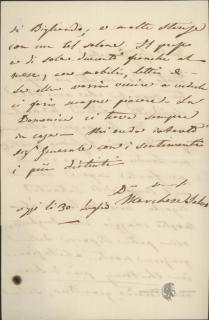 di Bigliardo, e molte stanze
con un bel salone. Il prezzo
è di soli duecento franchi al
mese, con mobili, letti &
Se ella vorrà venire a vederlo
ci farà sempre piacere. La
Domenica ci trova sempre
in casa. Mi creda intanto
Sigr Generale con i sentimenti
i più distinti
oggi li 30 Luglio Marchese